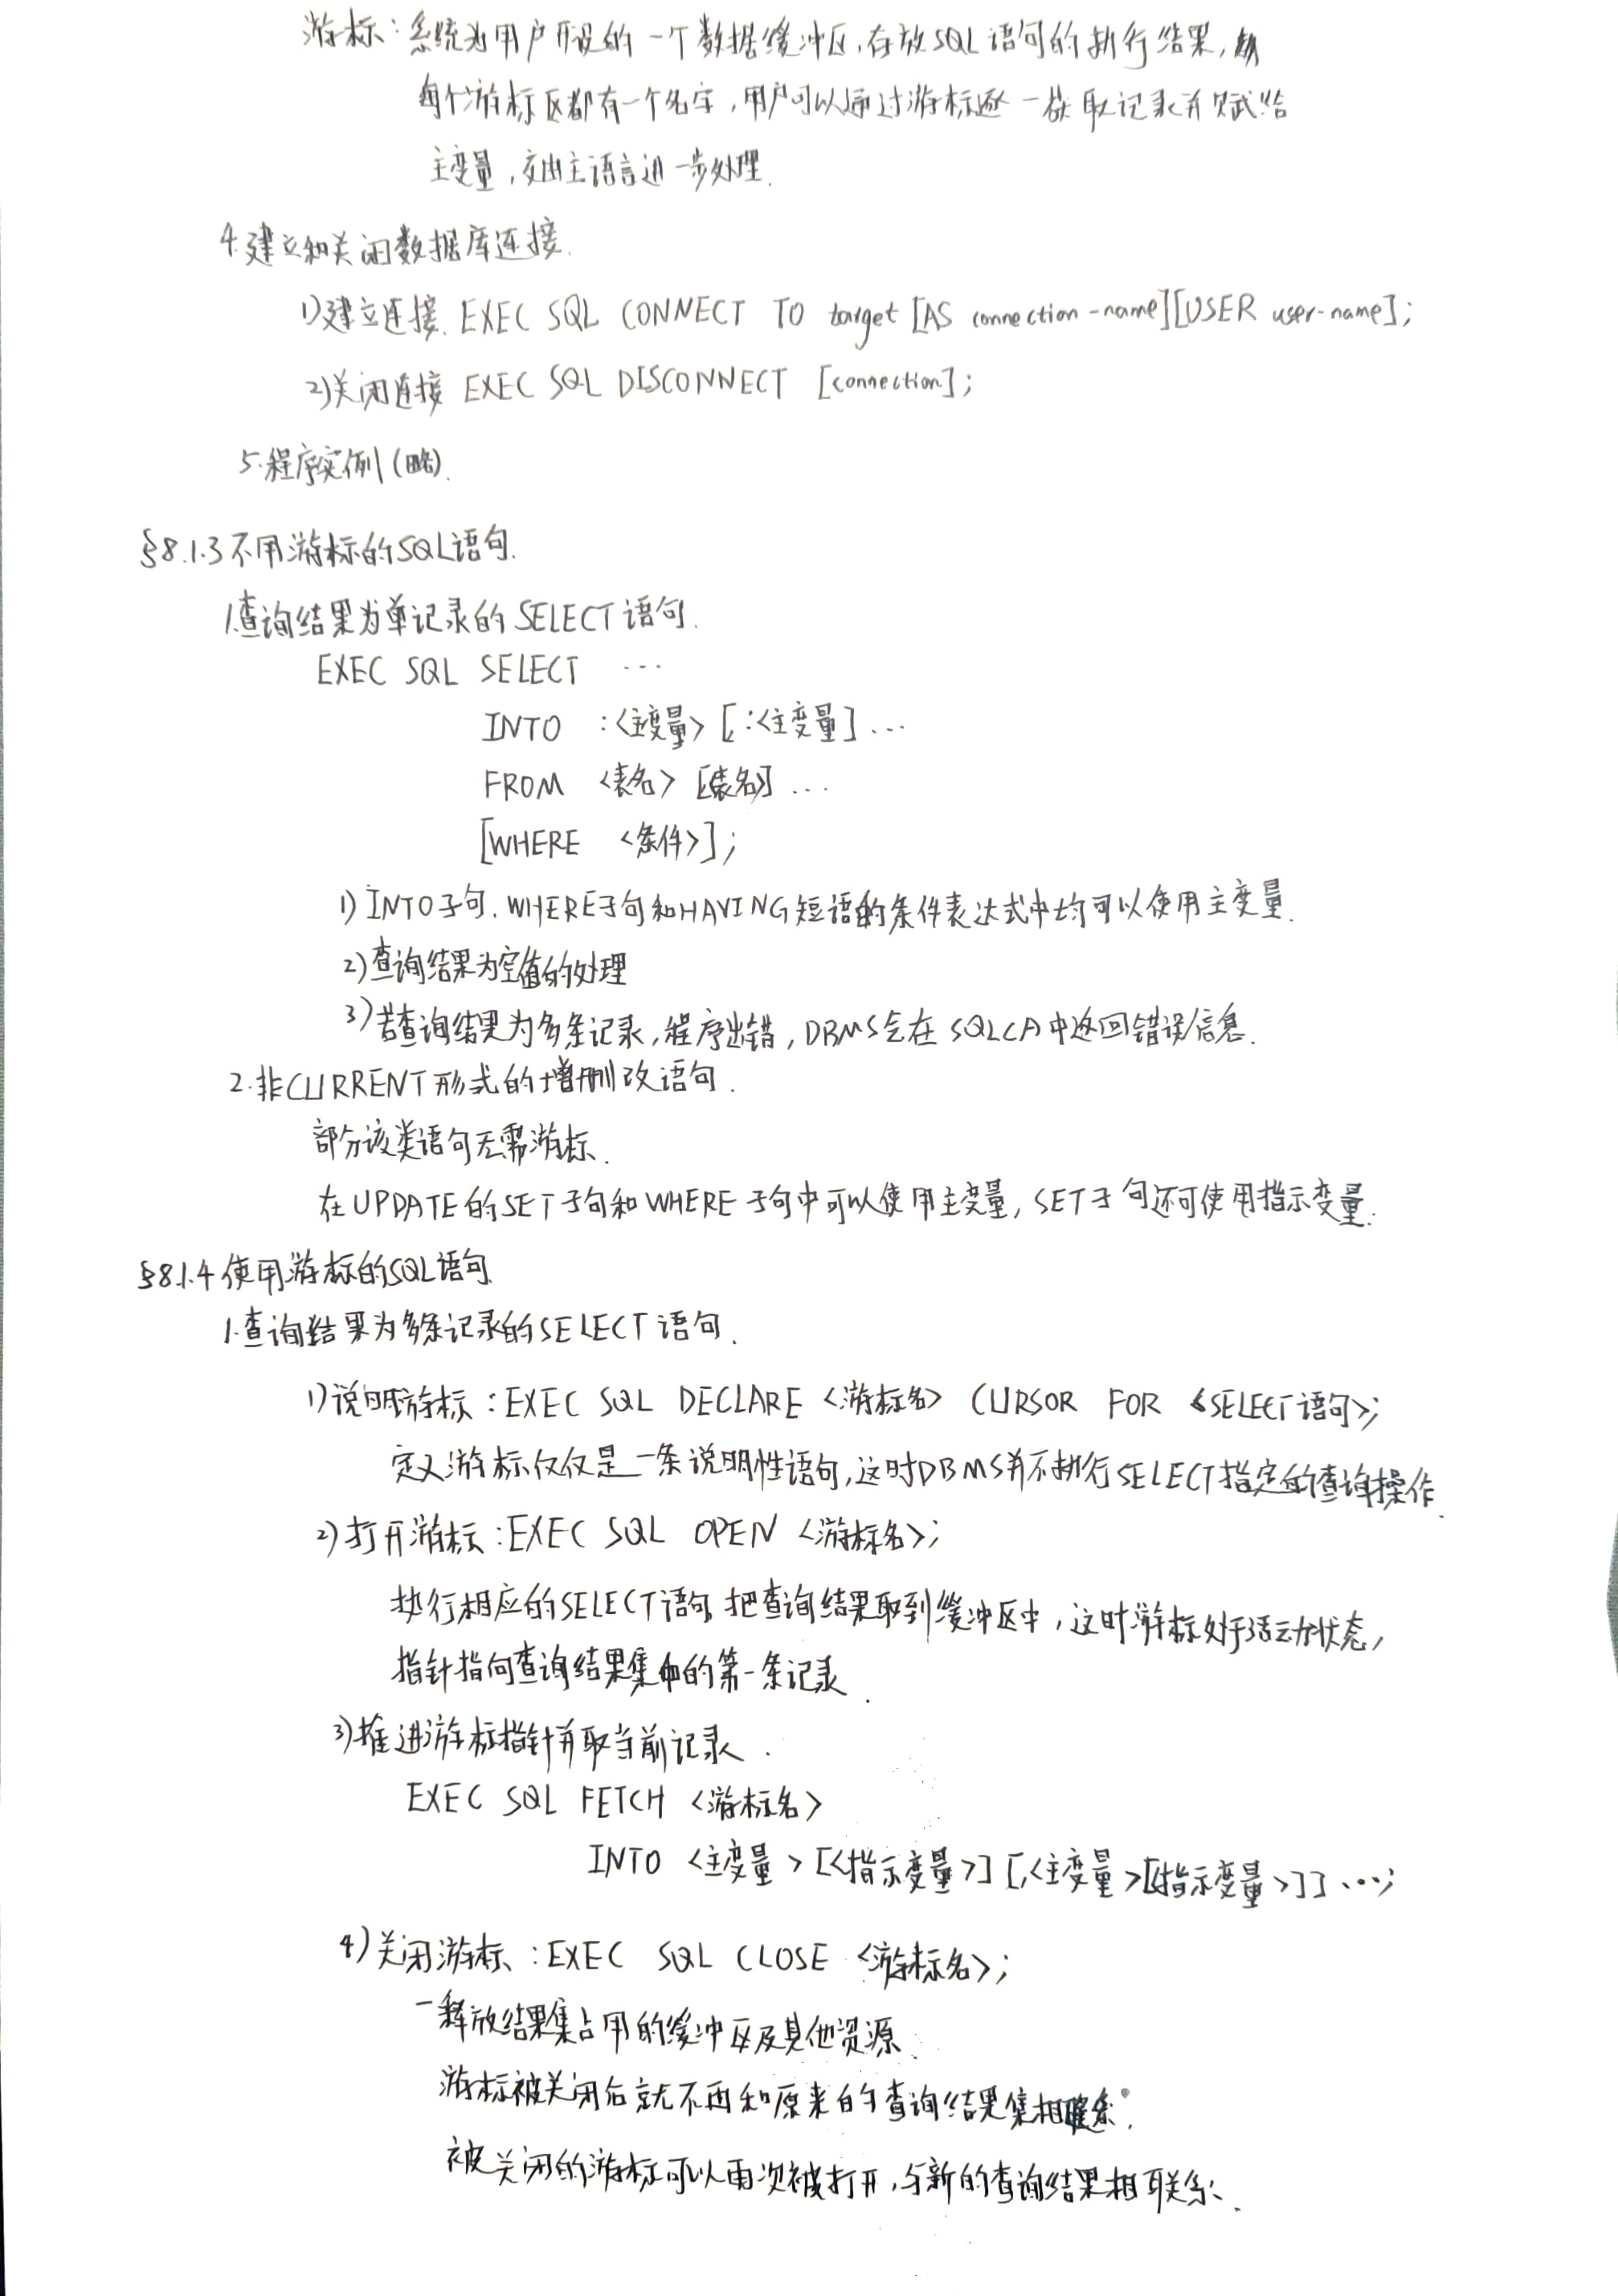 游标：系统为用户开设的一个数据缓冲区，存放SQL语句的执行结果，
每个游标区都有一个名字，用户可以通过游标逐一获取记录并赋给
主变量，交由主语言进一步处理．
4.建立和关闭数据库连接．
1)建立连接．EXEC SQL CONNECT TO target [AS connection-name][USER user-name];
2)关闭连接 EXEC SQL DISCONNECT [connection];
5.程序实例(略)．
§8.1.3不用游标的SQL语句．
1.查询结果为单记录的SELECT语句．
EXEC SQL SELECT ...
INTO :<主变量> [,:<主变量] ...
FROM <表名> [,表名>] ...
[WHERE <条件>];
1) INTO子句．WHERE子句和HAVING短语的条件表达式中均可以使用主变量．
2)查询结果为空值的处理
3)若查询结果为多条记录,程序出错, DBMS会在SQLCA中返回错误信息．
2.非CURRENT形式的增删改语句．
部分该类语句无需游标．
在UPDATE的SET子句和WHERE子句中可以使用主变量, SET子句还可使用指示变量．
§8.1.4使用游标的SQL语句．
1.查询结果为多条记录的SELECT语句．
1)说明游标：EXEC SQL DECLARE <游标名> CURSOR FOR <SELECT语句>;
定义游标仅仅是一条说明性语句,这时DBMS并不执行SELECT指定的查询操作．
2)打开游标：EXEC SQL OPEN <游标名>;
执行相应的SELECT语句,把查询结果取到缓冲区中,这时游标处于活动状态,
指针指向查询结果集中的第一条记录．
3)推进游标指针并取当前记录．
EXEC SQL FETCH <游标名>
INTO <主变量>[<指示变量>] [,<主变量>[<指示变量>]] ...;
4)关闭游标：EXEC SQL CLOSE <游标名>;
-释放结果集占用的缓冲区及其他资源．
游标被关闭后就不再和原来的查询结果集相联系．
被关闭的游标可以再次被打开,与新的查询结果相联系．